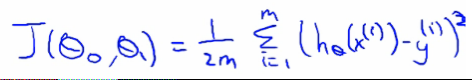 J(θ₀,θ₁) = 1/2m Σᵢ₌₁ᵐ (hθ(x⁽ⁱ⁾)-y⁽ⁱ⁾)²